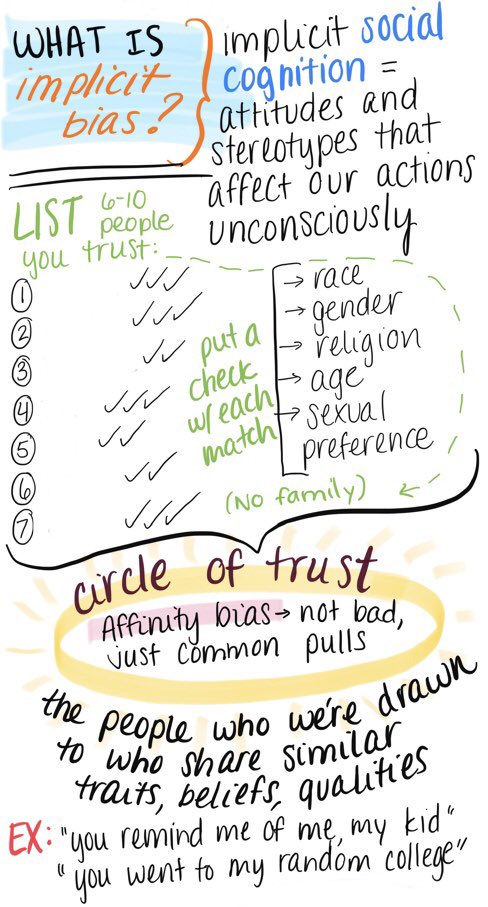 WHAT IS
implicit
bias?
implicit social
cognition =
attitudes and
stereotypes that
affect our actions
unconsciously
LIST 6-10
people
you trust:
① ✓✓✓
② ✓✓✓
③ ✓✓
④ ✓✓✓
⑤ ✓✓
⑥ ✓✓
⑦ ✓✓✓
put a
check
w/each
match
→ race
→ gender
→ religion
→ age
→ sexual
preference
(No family)
circle of trust
Affinity bias → not bad,
just common pulls
the people who we're drawn
to who share similar
traits, beliefs, qualities
EX: "you remind me of me, my kid"
"you went to my random college"